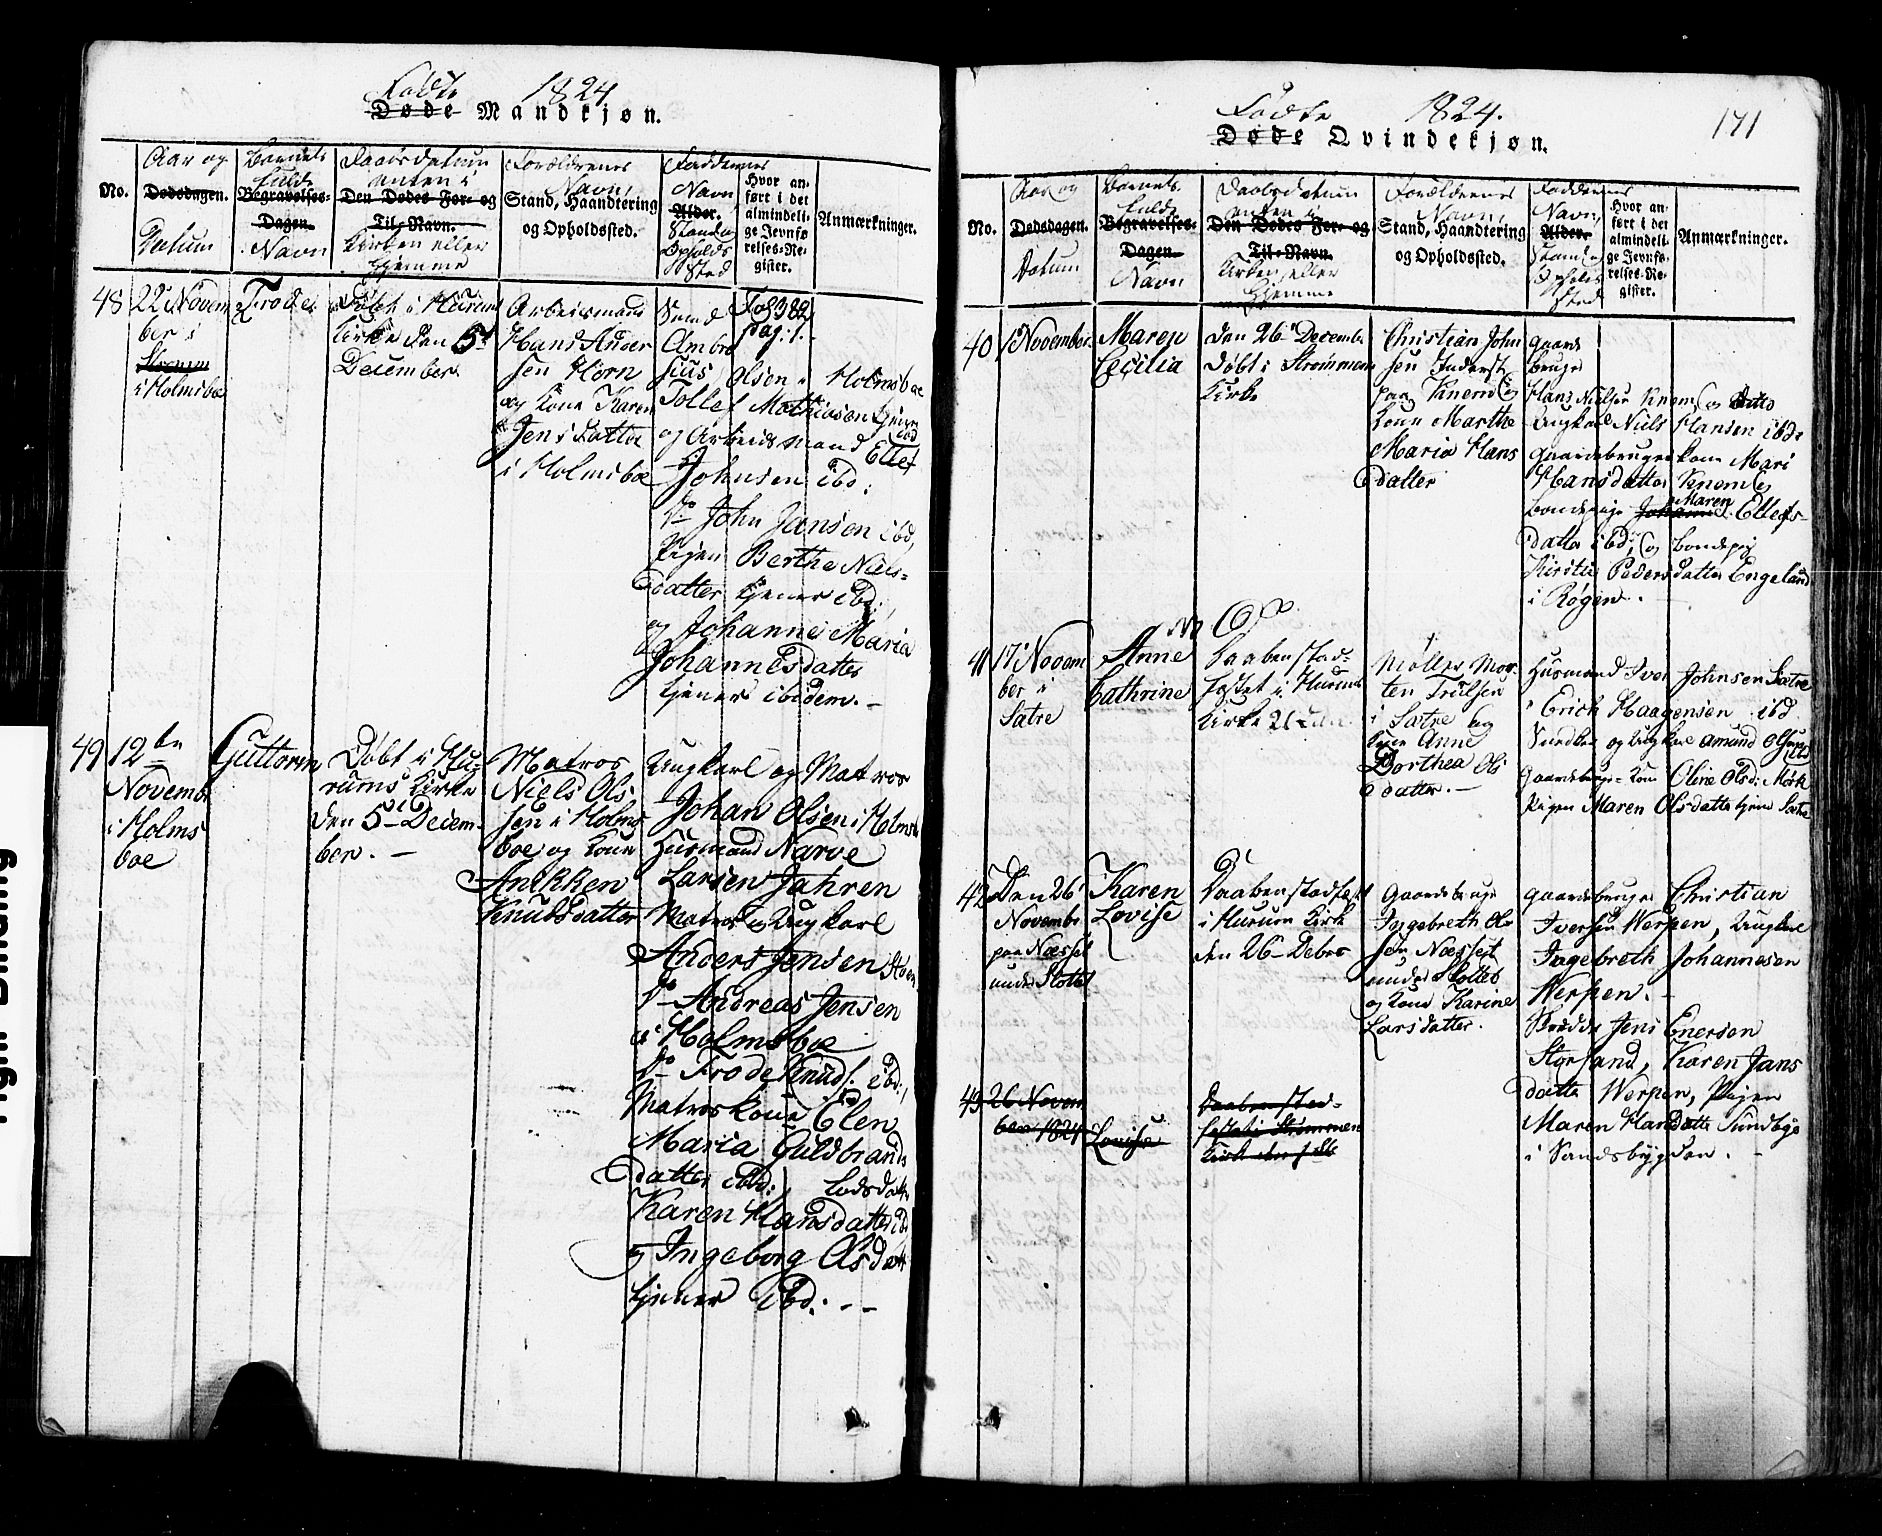 Fødte 1824
Døde Mandkjøn.
No.
Aar og
Dødsdagen.
Datum
Barnets
fulde
Begravelses-
Dagen.
Navn
Daabsdatum
enten i
Den Dødes For- og
Til-Navn.
Kirken eller
Hjemme
Forældrenes
Navn,
Stand, Haandtering
og Opholdssted.
Faddernes
Navn,
Alder.
Stand og
Opholds
Sted
Hvor an-
ført i det
almindeli-
ge Jevnfø-
relses-Re-
gister.
Anmærkninger.
48
22 Novem
ber i
i Holmsboe
Frode
Døbt i Hurums
Kirke den 5t
December
Arbeidsmand
Hans Ander
sen Horn
og Kone Karen
Jensdatter
i Holmsboe
Ambro
sius Olsen Holmsboe
Tollef Mathiesen
og Arbeidsmand Ellef
Johnsen ibd:
Do John Jansen ibd,
Pigen Berthe Niels-
datter tjener ibd:,
og Johanne Maria
Johannesdatter
tjener ibidem. -
Fol 382
pag: 1.
49
12te
Novembr
i Holms
boe
Guttorm
Døbt i Hu-
rums Kirke
den 5- Decem-
ber. -
Matros
Niels Ols
sen i Holms
boe og Kone
Anikken
Knudsdatter
Ungkarl og Matros
Johan Olsen i Holmsb
Husmand Narve
Larsen Jahren
Matros og Ungkarl
Anders Jensen
Do Andreas Jensen
i Holmsboe
Do Frode Knuds: ibd:,
Matroskone Elen
Maria Guldbrands
datter ibd:,
Karen Hansdatter ibd
og Ingeborg Olsdatt
tjener ibd: --
Fødte 1824.
171
Døde Qvindekjøn.
No.
Aar og
Dødsdagen
Datum
Barnets
fulde
Begravelses-
Dagen.
Navn
Daabsdatum
enten i
Den Dødes For- og
Til-Navn.
Kirken, eller
Hjemme
Forældrenes
Navn,
Stand, Haandtering
og Opholdssted.
Faddernes
Navn,
Alder.
Stand og
Opholds
Sted
Hvor an-
ført i det
almindeli-
ge Jevnfø-
relses-Re-
gister.
Anmærkninger.
40
1 November
Maren
Cecilia
den 26 December
døbt i Strømmen
Kirke
Christian John
sen Inderst
paa Knem og
Kone Marthe
Maria Hans
datter
Gaard
bruger
Hans Nielsen Knem, og ditto
Ungkarl Niels Hansen ibd:
Gaardbruger kone Mari
Hansdatter Knem og
Bondepige Maren Ellefs-
datter ibd:, og Bondepig
Kirstie Pedersdatter Engelund
i Røgen. -
41
17 Novem
ber i
Sætre
Anne
Cathrine
Daaben stad-
fæstet i Hurums
Kirke
Møller Mor
ten Trulsen
i Sætre og
Kone Anne
Dorthea Ols
datter. -
Husmand Iver Johnsen Sætre
Erich Haagensen ibd.
og Ungkarl Amund Olsen
Gaardbruger- Kone Oline Olsd: Mørk
Pigen Maren Olsdatter tjener Sætre
42
Den 26
Novembr
paa Næsset
under Slottet
Karen
Lovise
Daaben stadfæst
i Hurum Kirk
den 26- Debr
Gaardbruger
Ingebreth Ol
sen Næsset
under Slottet
og Kone Karine
Larsdatter.
Gaardbruger Christian
Iversen Werpen, Ungkarl
Ingebreth Johannesen
Werpen. -
Jens Enersen
Storsand, Karen Jans
datter Werpen, Pigen
Maren Hansdatter Sundbye
i Sandsbygden. -
43
26 Novem
ber 1824
Lovise
Daaben stad-
fæstet i Strømmen
Kirk